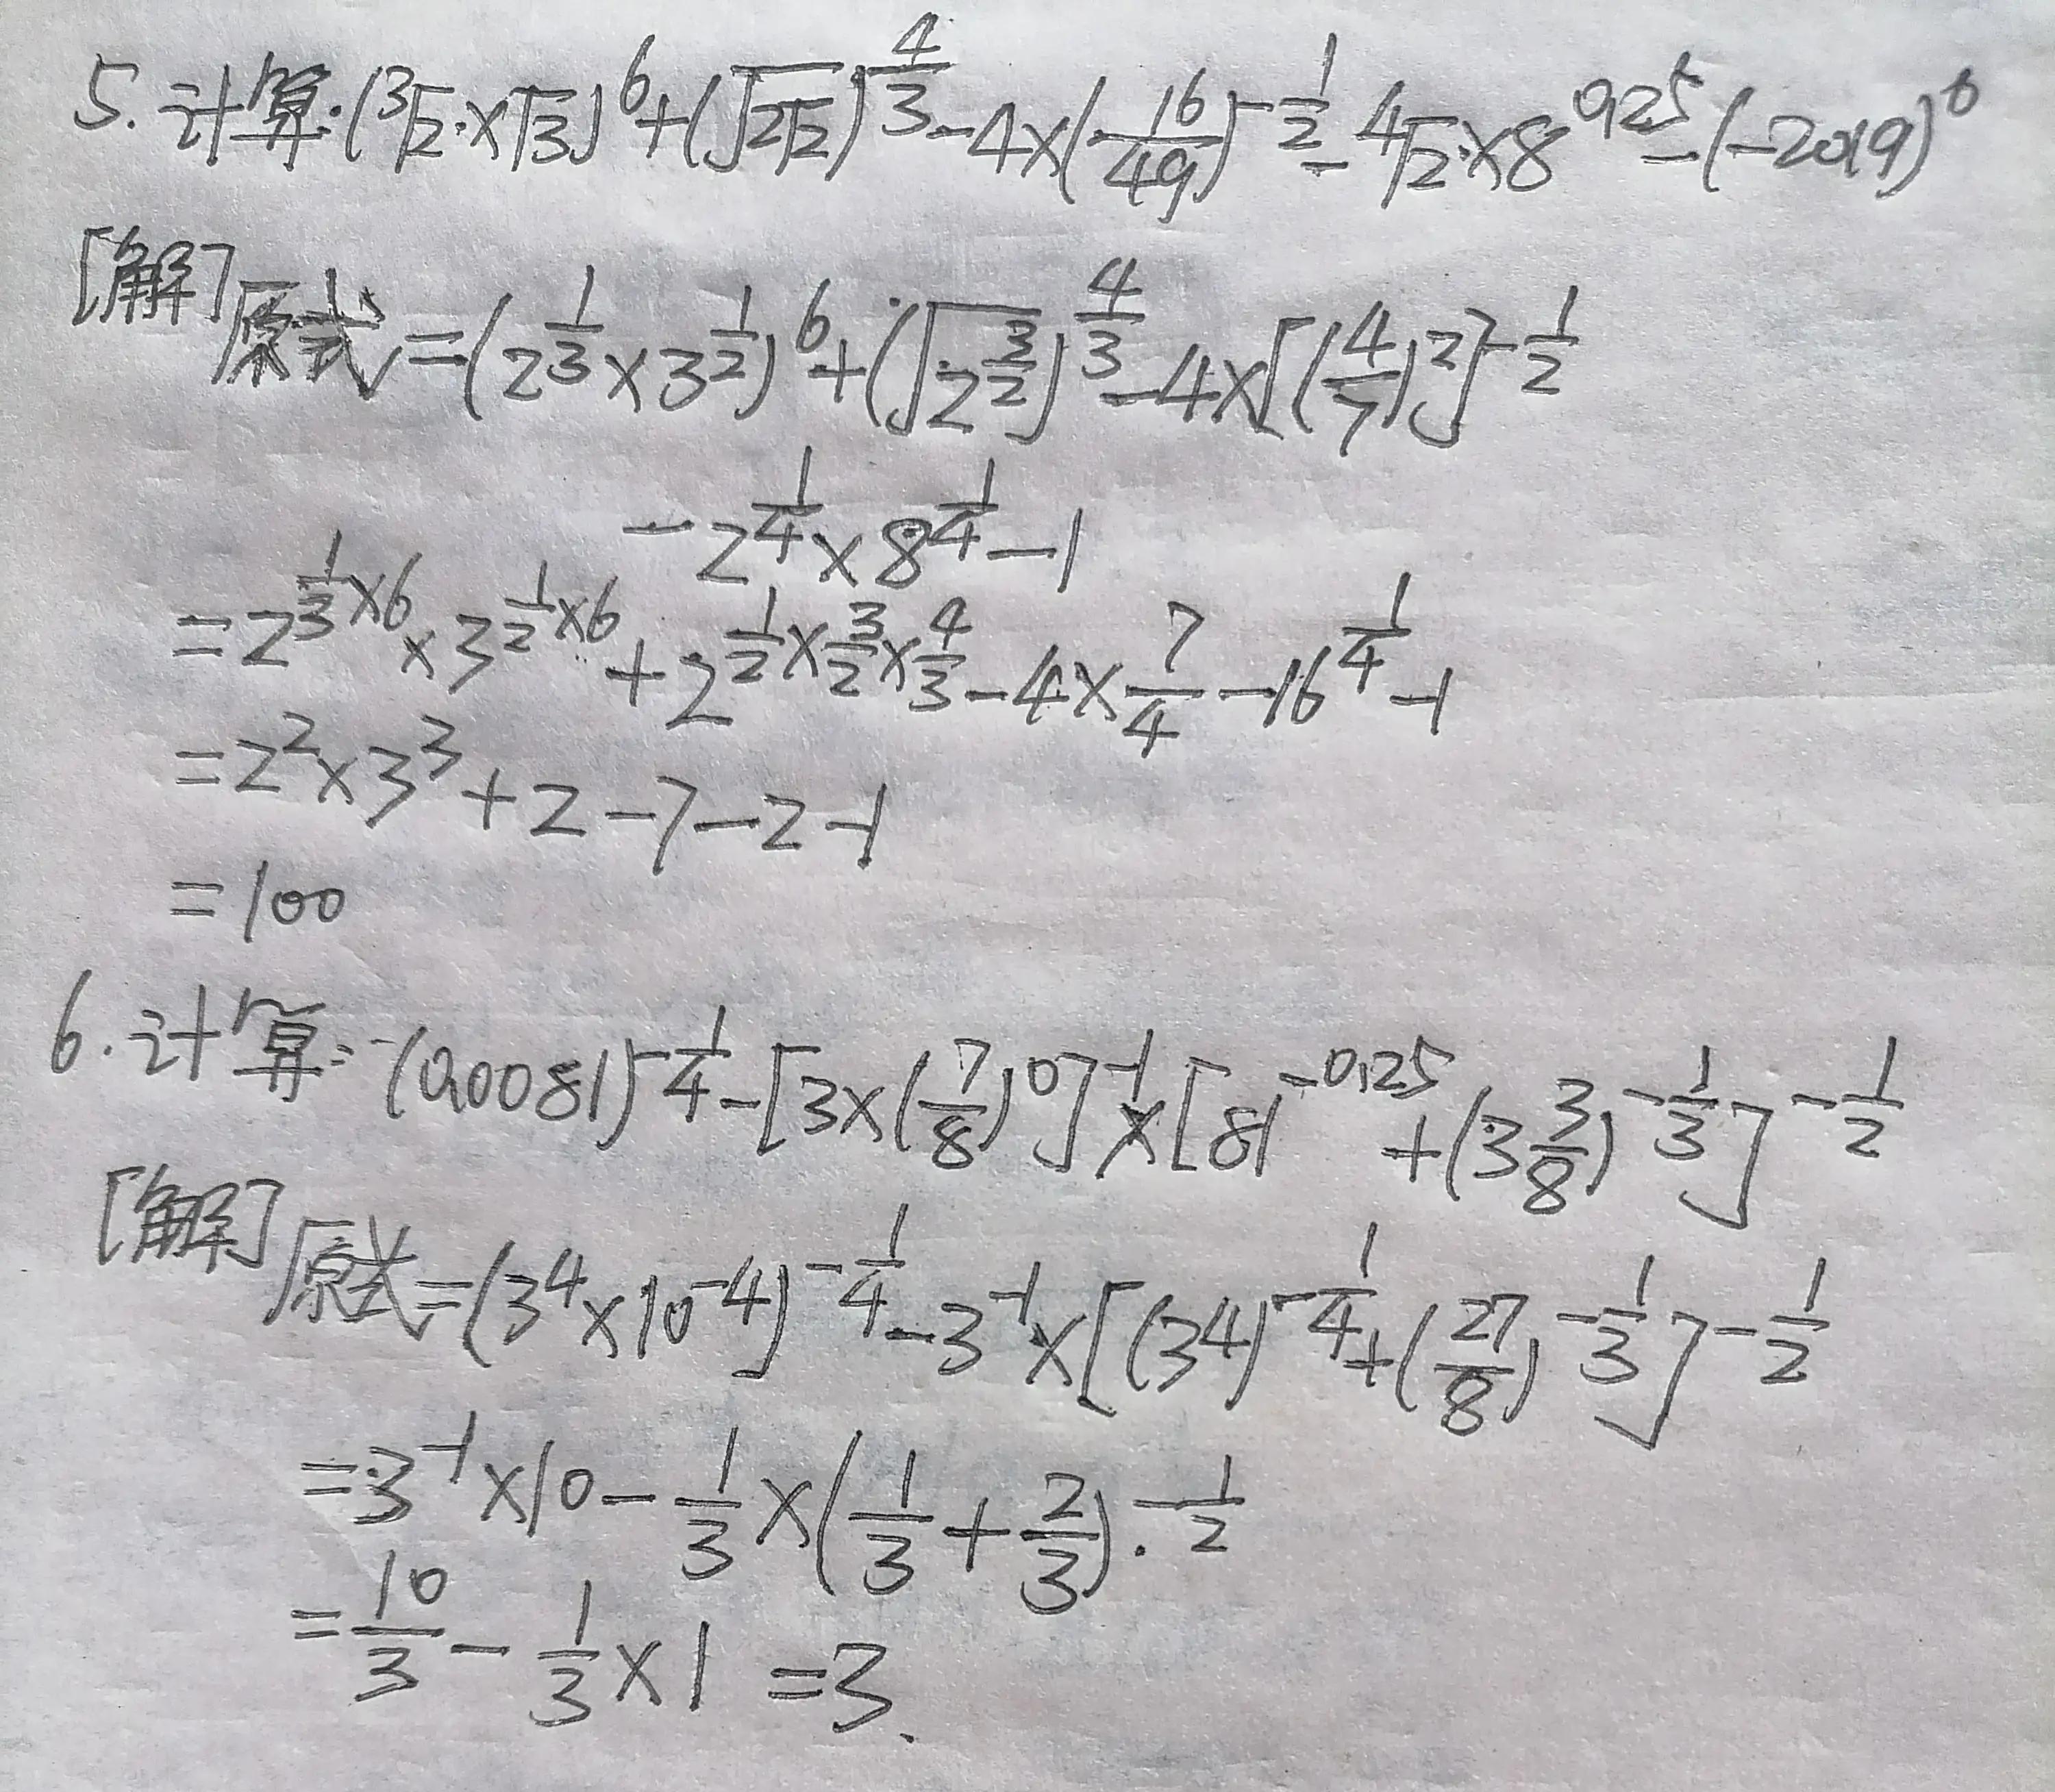 5. 计算:(∛2×√3)^6+(√(2√2))^(4/3)-4×(16/49)^(-1/2)-⁴√2×8^0.25-(-2019)^0
[解]原式=(2^(1/3)×3^(1/2))^6+(√(2^(3/2)))^(4/3)-4×[(4/7)^2]^(-1/2)
-2^(1/4)×8^(1/4)-1
=2^(1/3×6)×3^(1/2×6)+2^(1/2×3/2×4/3)-4×7/4-16^(1/4)-1
=2^2×3^3+2-7-2-1
=100
6. 计算:(0.0081)^(-1/4)-[3×(7/8)^0]^(-1)×[81^(-0.25)+(3 3/8)^(-1/3)]^(-1/2)
[解]原式=(3^4×10^(-4))^(-1/4)-3^(-1)×[(3^4)^(-1/4)+(27/8)^(-1/3)]^(-1/2)
=3^(-1)×10-1/3×(1/3+2/3)^(-1/2)
=10/3-1/3×1=3.